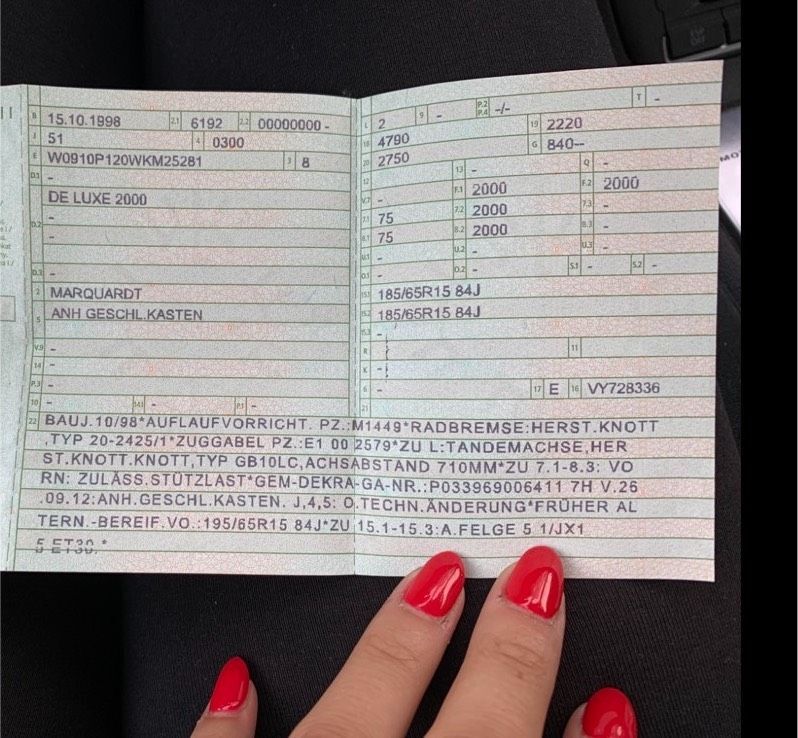 B 15.10.1998 2.1 6192 2.2 00000000 -
J 51 4 0300
E W0910P120WKM25281 3 8
D.1 -
DE LUXE 2000
D.2 -
-
-
D.3 -
2 MARQUARDT
5 ANH GESCHL.KASTEN
V.9 -
14 -
P.3 -
10 - 14.1 - P.1 -
L 2 9 - P.2 P.4 -/- T -
18 4790 19 2220
20 2750 G 840--
12 - 13 - Q -
V.7 - F.1 2000 F.2 2000
7.1 75 7.2 2000 7.3 -
8.1 75 8.2 2000 8.3 -
U.1 - U.2 - U.3 -
O.1 - O.2 - S.1 - S.2 -
15.1 185/65R15 84J
15.2 185/65R15 84J
15.3 -
R - 11
K -
6 - 17 E 16 VY728336
21
22 BAUJ.10/98*AUFLAUFVORRICHT. PZ.:M1449*RADBREMSE:HERST.KNOTT
,TYP 20-2425/1*ZUGGABEL PZ.:E1 00 2579*ZU L:TANDEMACHSE,HER
ST.KNOTT.KNOTT,TYP GB10LC,ACHSABSTAND 710MM*ZU 7.1-8.3: VO
RN: ZULÄSS.STÜTZLAST*GEM-DEKRA-GA-NR.:P033969006411 7H V.26
.09.12:ANH.GESCHL.KASTEN. J,4,5: O.TECHN.ÄNDERUNG*FRÜHER AL
TERN.-BEREIF.VO.:195/65R15 84J*ZU 15.1-15.3:A.FELGE 5 1/JX1
5 ET30.*